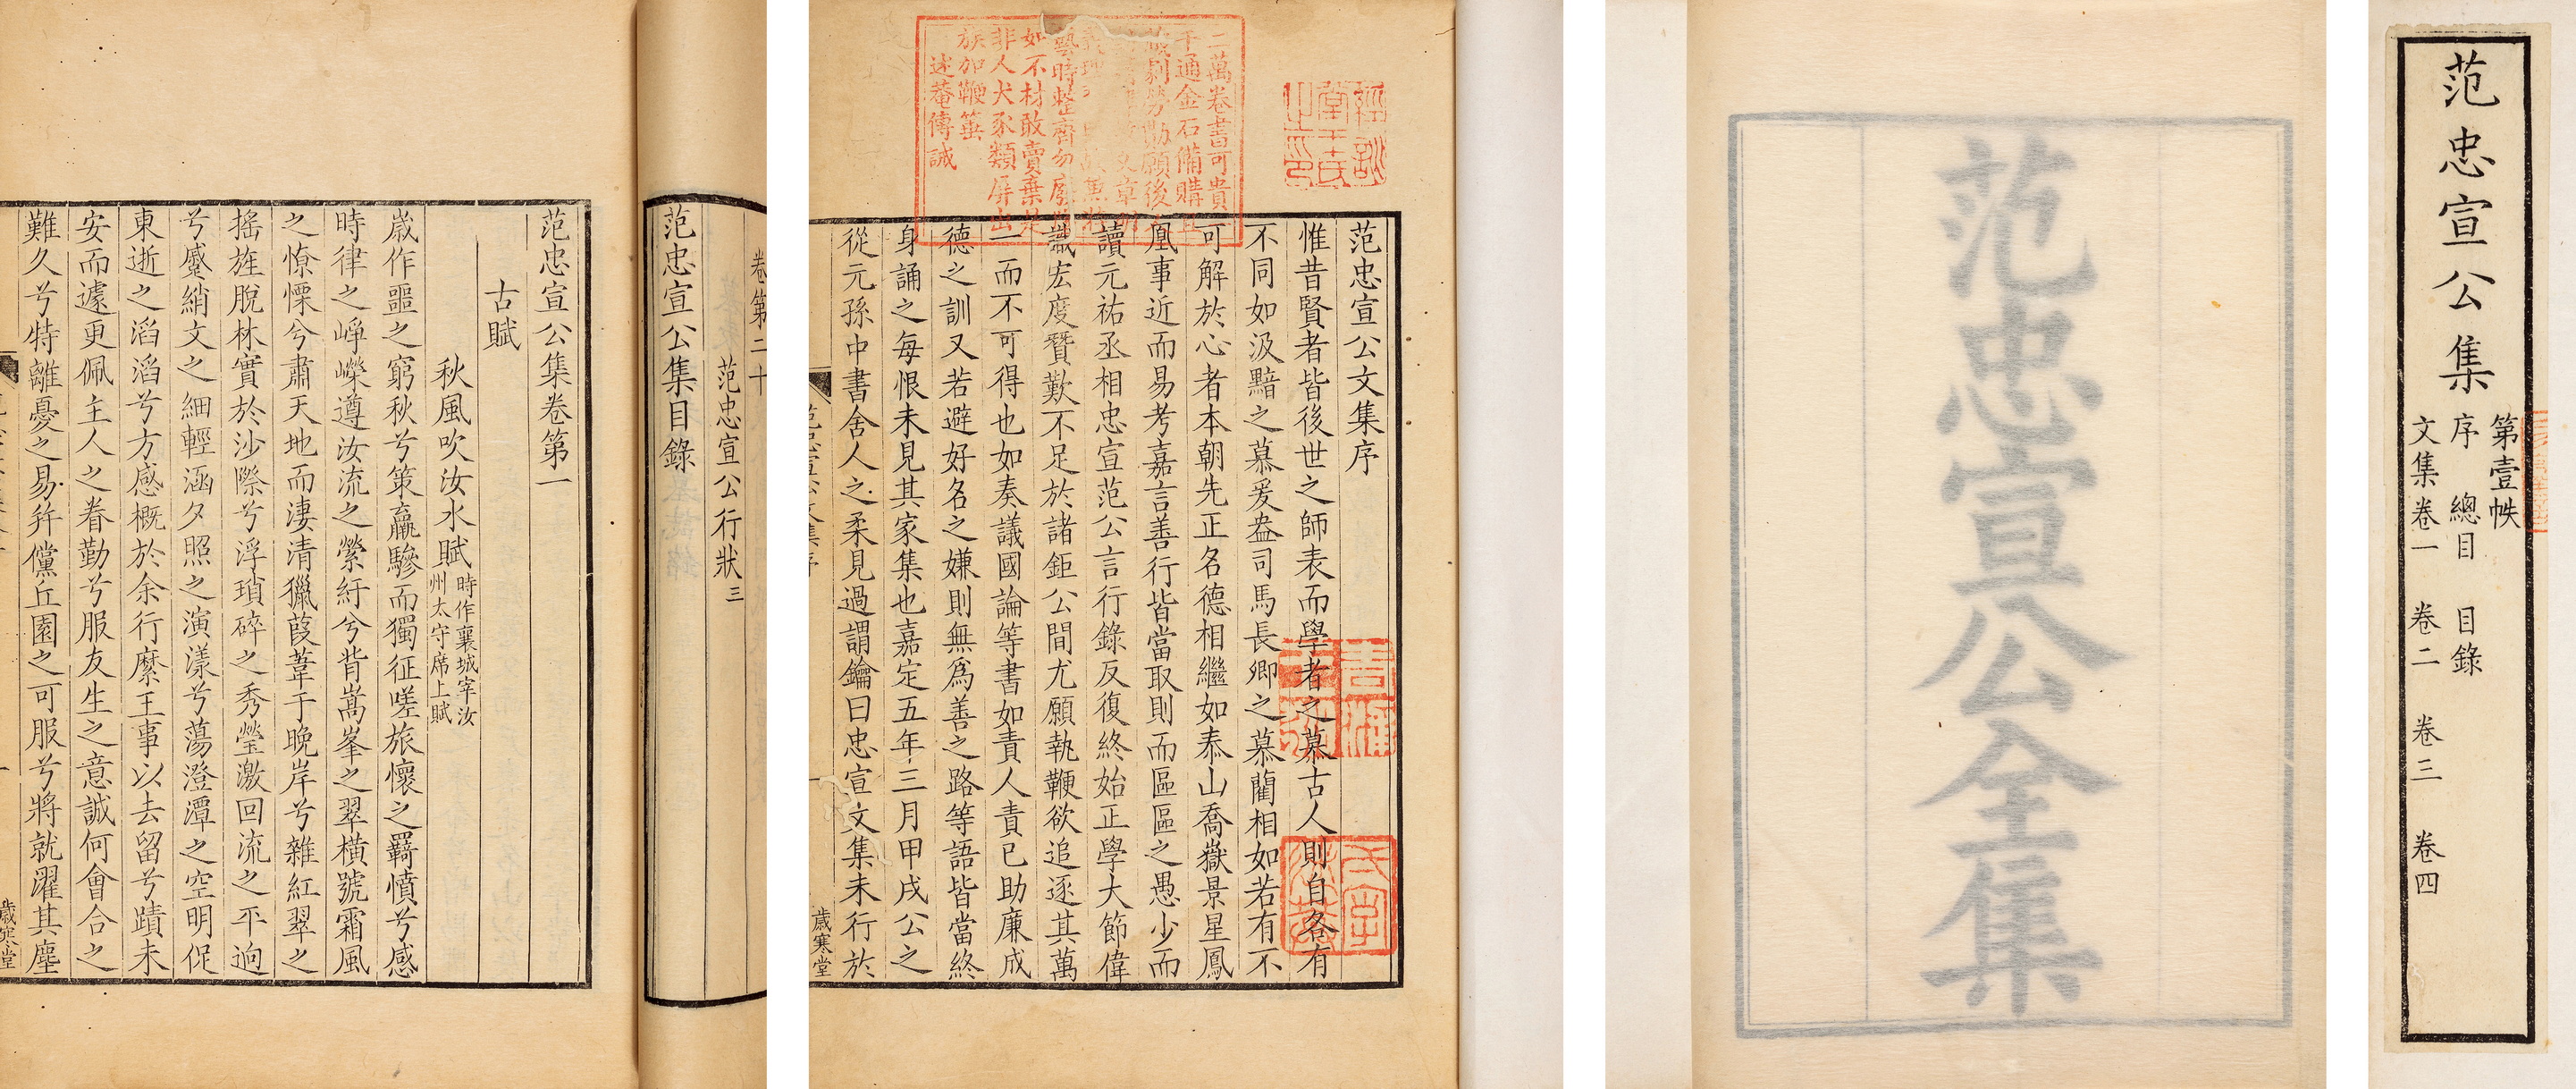 范忠宣公集
第壹帙
序 總目 目錄
文集卷一 卷二 卷三 卷四
范忠宣公全集
范忠宣公文集序
惟昔賢者皆後世之師表而學者之慕古人則自各有
不同如汲黯之慕爰盎司馬長卿之慕藺相如若有不
可解於心者本朝先正名德相繼如泰山喬嶽景星鳳
凰事近而易考嘉言善行皆當取則而區區之愚少而
讀元祐丞相忠宣范公言行錄反復終始正學大節偉
識宏度賛歎不足於諸鉅公間尤願執鞭欲追逐其萬
一而不可得也如奏議國論等書如責人責已助廉成
德之訓又若避好名之嫌則無爲善之路等語皆當終
身誦之每恨未見其家集也嘉定五年三月甲戌公之
從元孫中書舍人之柔見過謂鑰曰忠宣文集未行於
歲寒堂
二萬卷書可貴
一千通金石備購且
藏劇勞勩願後人
勿廢
如不材敢賣棄是
非人犬豕類屏出
族加鞭箠
述菴傳誡
經訓堂王氏之印
卷第二十
范忠宣公行狀三
范忠宣公集目錄
范忠宣公集卷第一
古賦
秋風吹汝水賦 時作襄城宰汝州太守席上賦
歲作噩之窮秋兮策羸驂而獨征嗟旅懷之羇憤兮感
時律之崢嶸遵汝流之縈紆兮背嵩峯之翠橫號霜風
之憭慄兮肅天地而淒清獵葭葦于晚岸兮雜紅翠之
搖旌脫林實於沙際兮浮瑣碎之秀瑩激回流之平逈
兮蹙綃文之細輕涵夕照之演漾兮蕩澄潭之空明促
東逝之滔滔兮方感槪於余行縻王事以去留兮蹟未
安而遽更佩主人之眷勤兮服友生之意誠何會合之
難久兮特離憂之易幷儻丘園之可服兮將就濯其塵
歲寒堂